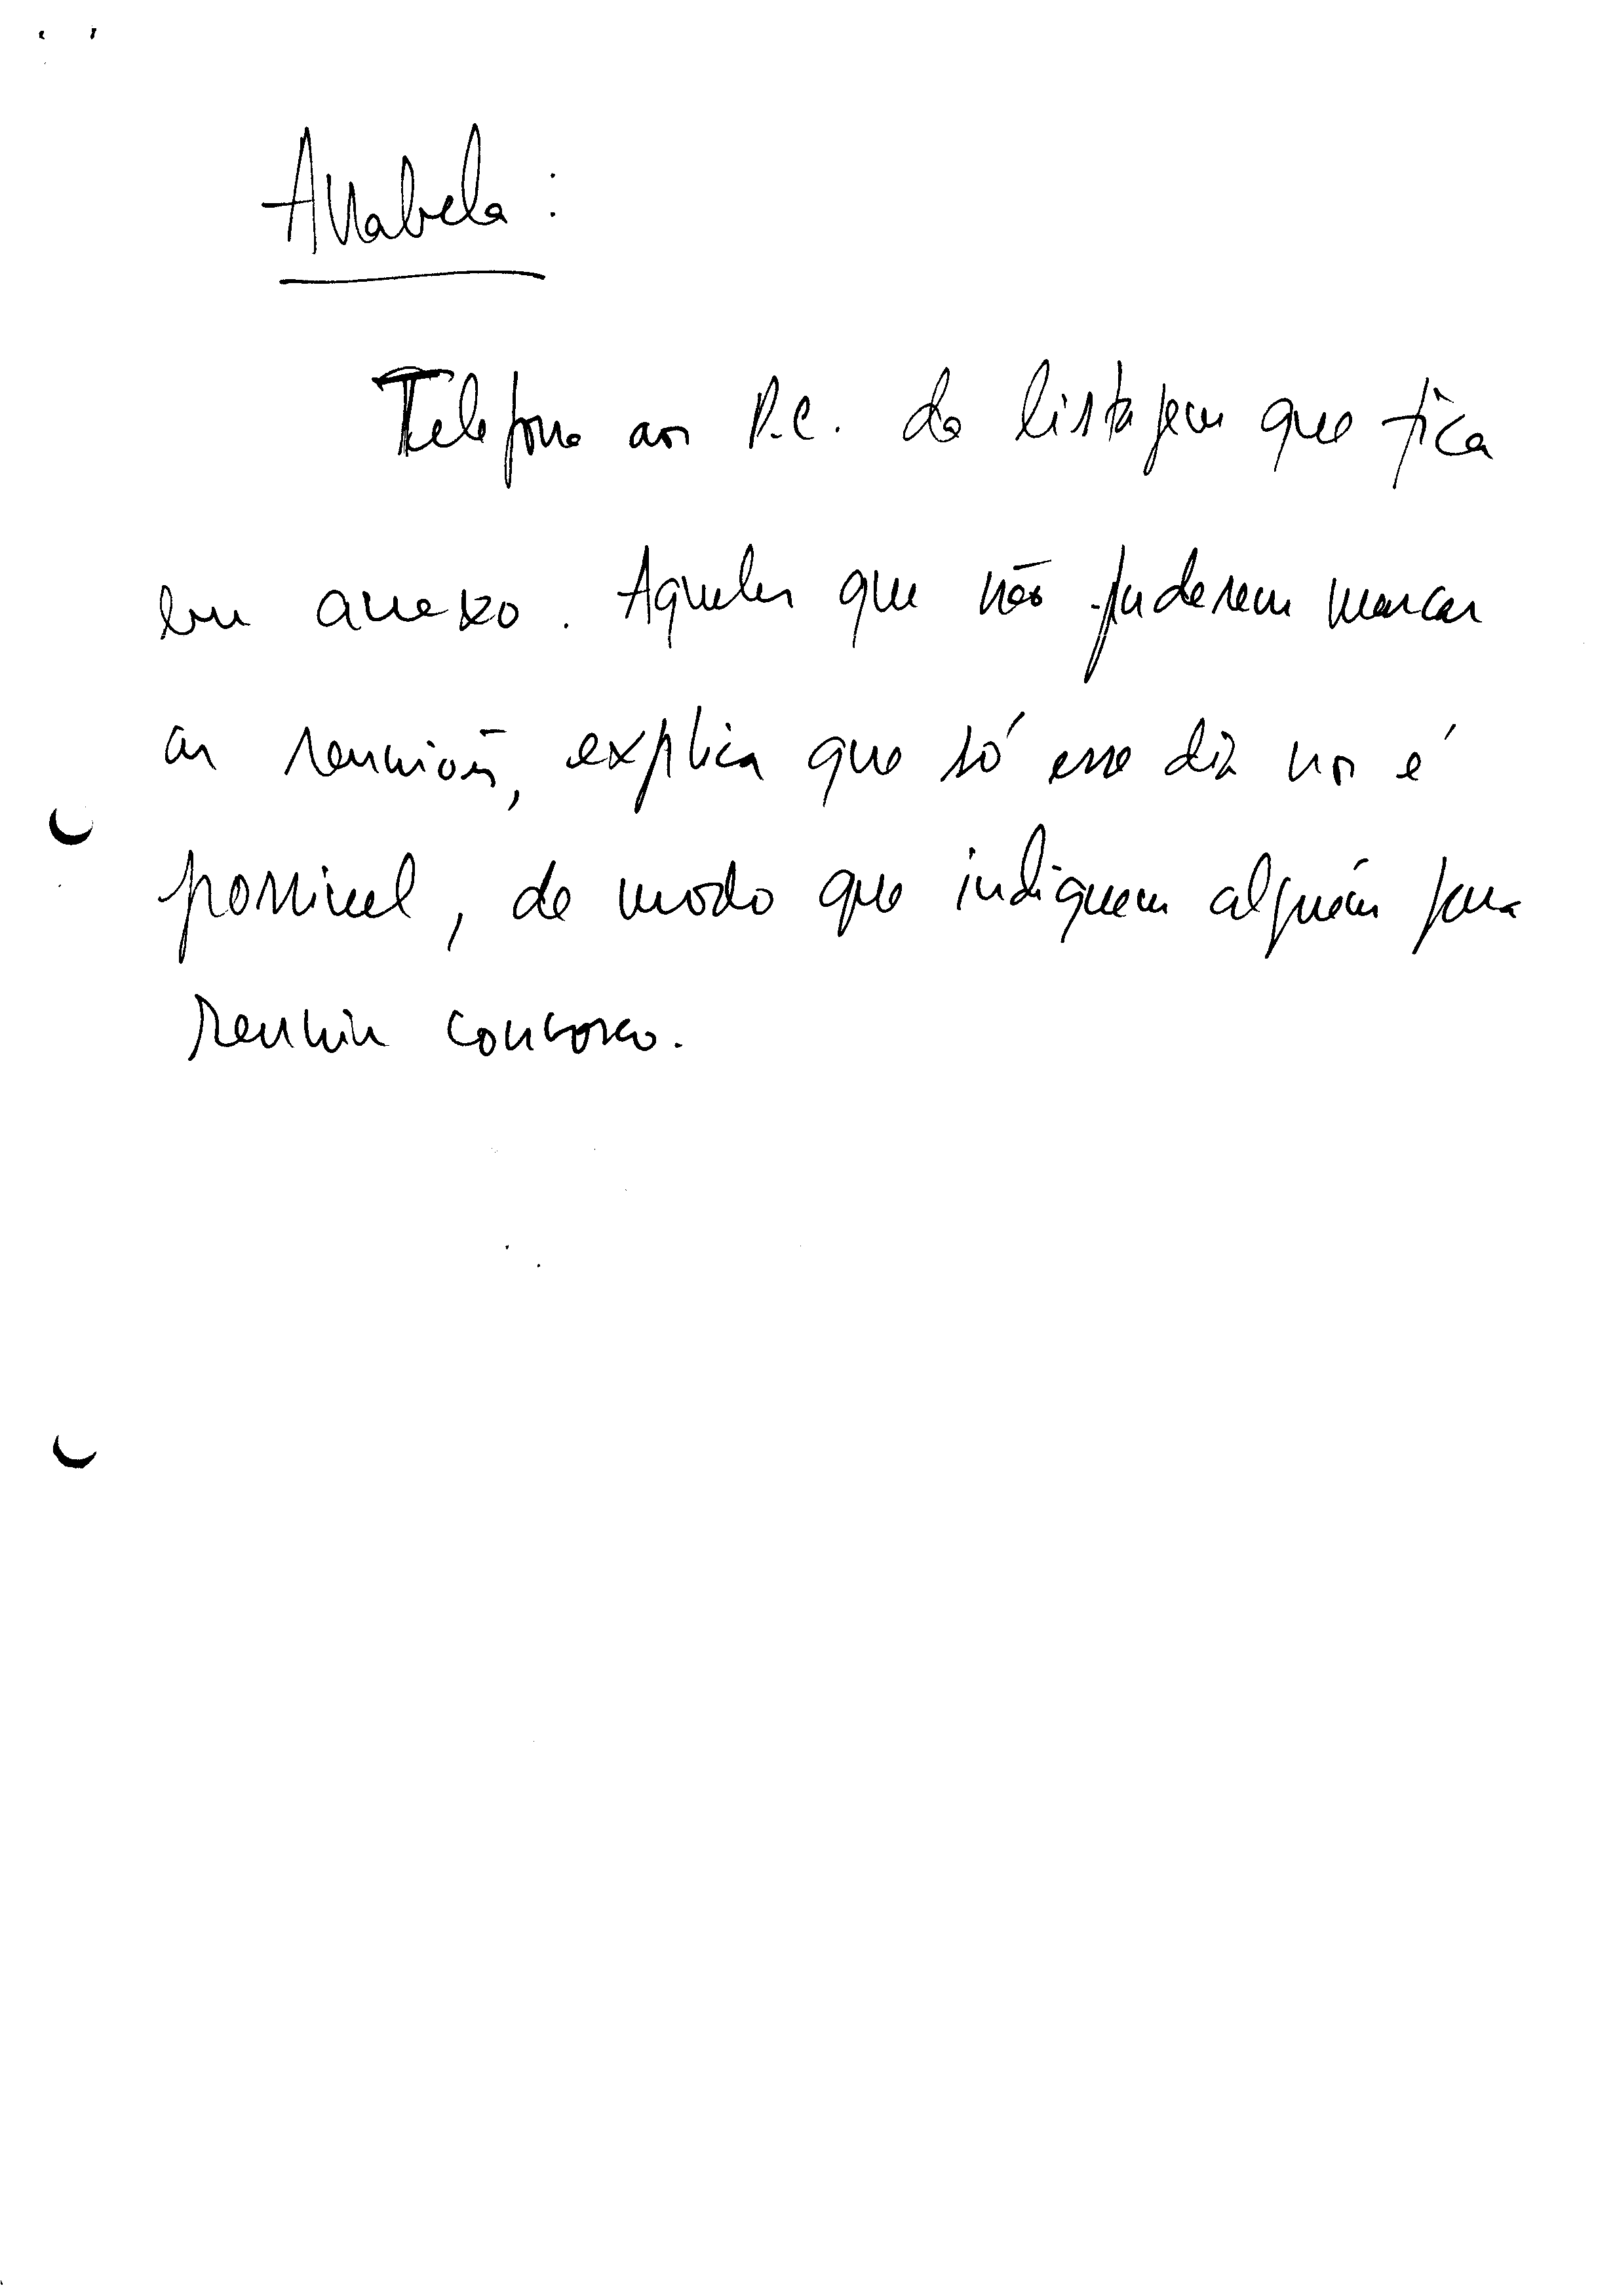 Anabela:
Telefona aos P.C. da listagem que fica
em anexo. Aqueles que não puderem marcar
as reuniões, explica que só esse dia nos é
possível, de modo que indiquem alguém para
reunir convosco.